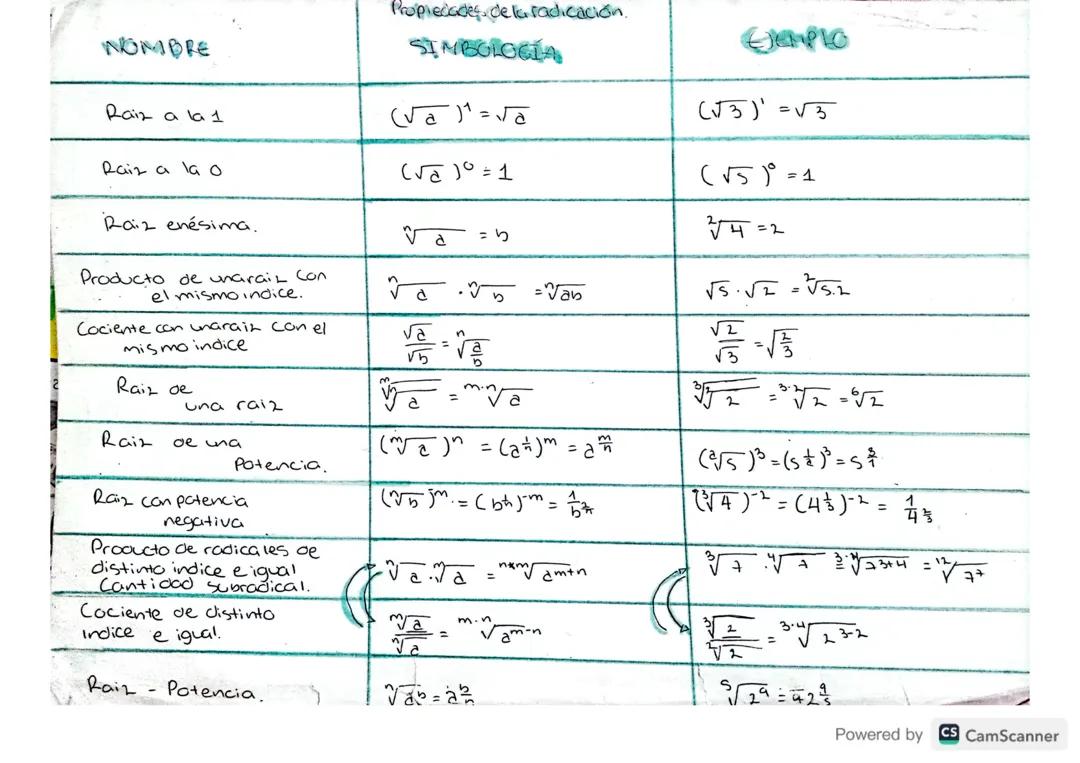 Propiedades de la radicación.
NOMBRE SIMBOLOGÍA EJEMPLO
Raiz a la 1 (√a)¹ = √a (√3)¹ = √3
Raiz a la 0 (√a)⁰ = 1 (√5)⁰ = 1
Raiz enésima. ⁿ√a = b ²√4 = 2
Producto de unaraiz con
el mismo indice. ⁿ√a · ⁿ√b = ⁿ√ab √5 · √2 = ²√5.2
Cociente con unaraiz con el
mismo indice √a/√b = ⁿ√(a/b) √2/√3 = √(2/3)
Raiz de
una raiz ᵐ√(ⁿ√a) = ᵐ·ⁿ√a ³√(²√2) = ³·²√2 = ⁶√2
Raiz de una
Potencia. (ᵐ√a)ⁿ = (a^(1/n))^m = a^(m/n) (²√5)³ = (5^(1/2))³ =
Raiz con potencia
negativa (ⁿ√b)^m. = (b^(1/n))^-m = (³√4)^-2 = (4^(1/3))^-2 =
Producto de radicales de
distinto indice e igual
Cantidad subradical. ⁿ√a · ᵐ√a = √a^(m+n) ³√7 · ⁴√7 = ¹²√7⁷
Cociente de distinto
indice e igual. ᵐ√a/ⁿ√a = ᵐ·ⁿ√a^(m-n) = ³·⁴√2^(3-2)
Raiz - Potencia. ⁿ√a^b = a^(b/n) ⁵√2⁹ =